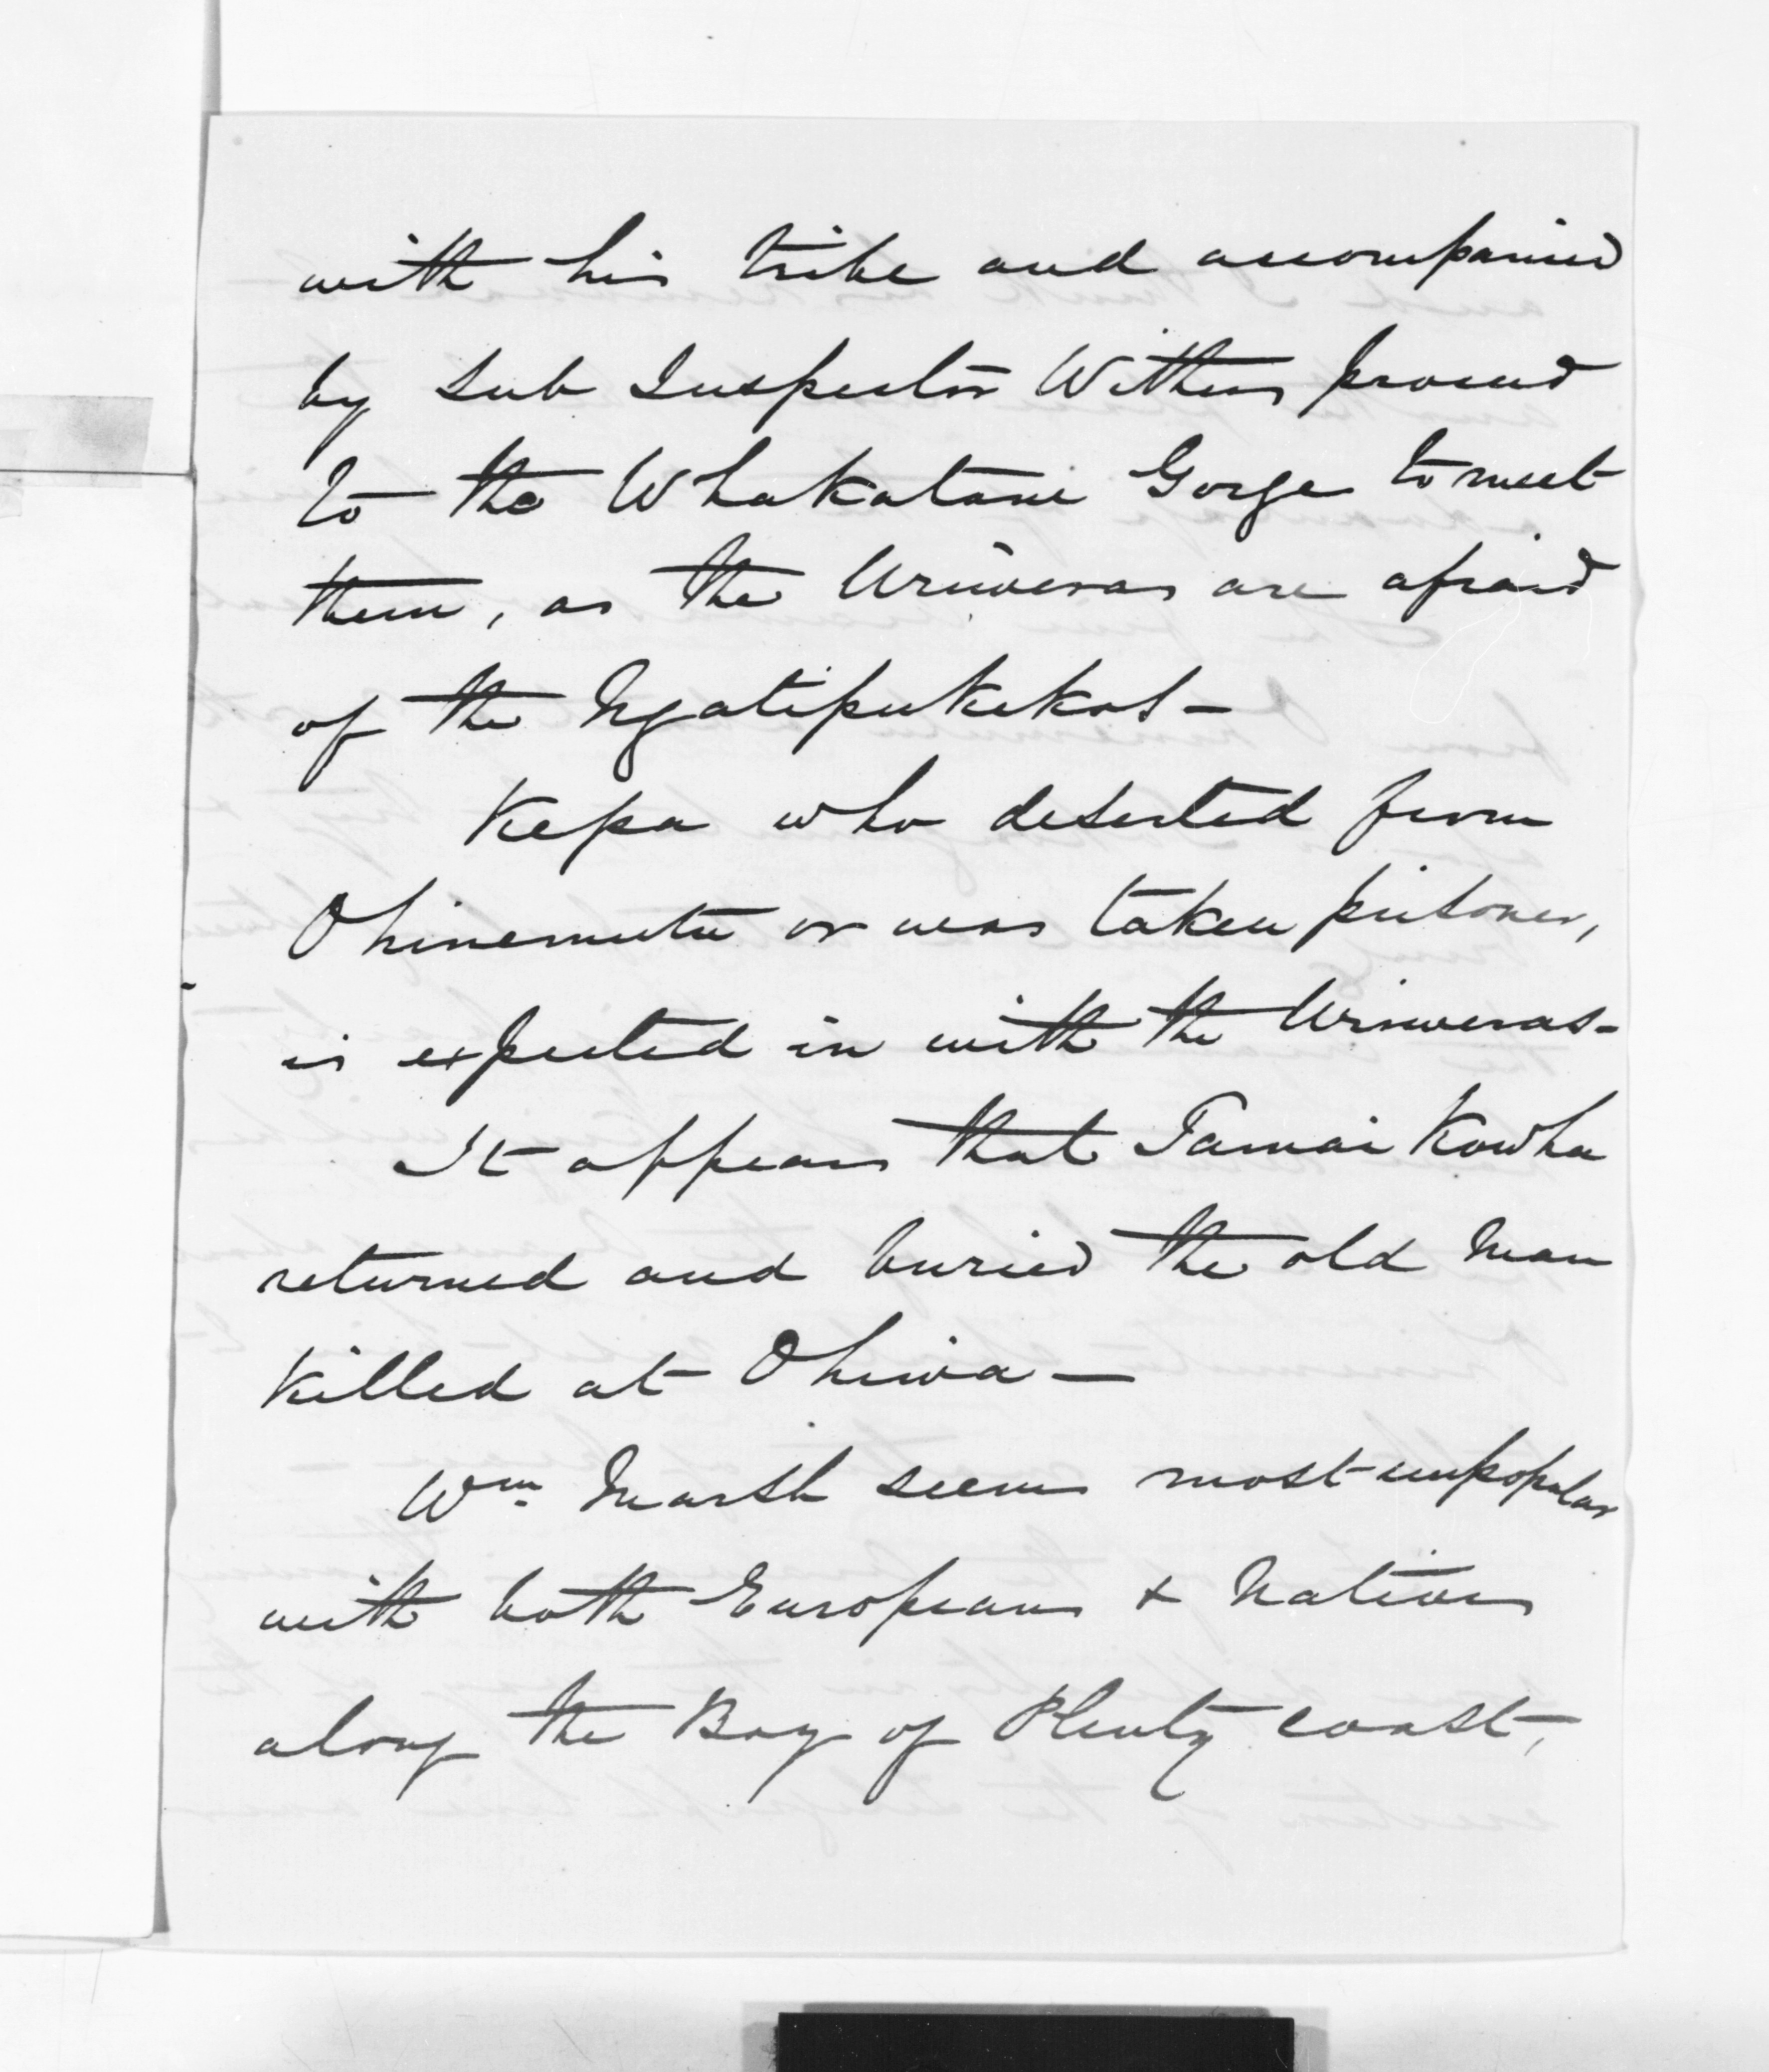 with his tribe and accompanied
by Sub Inspector Withers proceed
to the Whakatane Gorge to meet
them, as the Uriweras are afraid
of the Ngatipukekos -
Kepa who deserted from
Ohinemutu or was taken prisoner,
is expected in with the Uriweras -
It appears that Tamai Kowha
returned and buried the old man
killed at Ohiwa -
Wm Marsh seems most unpopular
with both Europeans & Natives
along the Bay of Plenty coast,